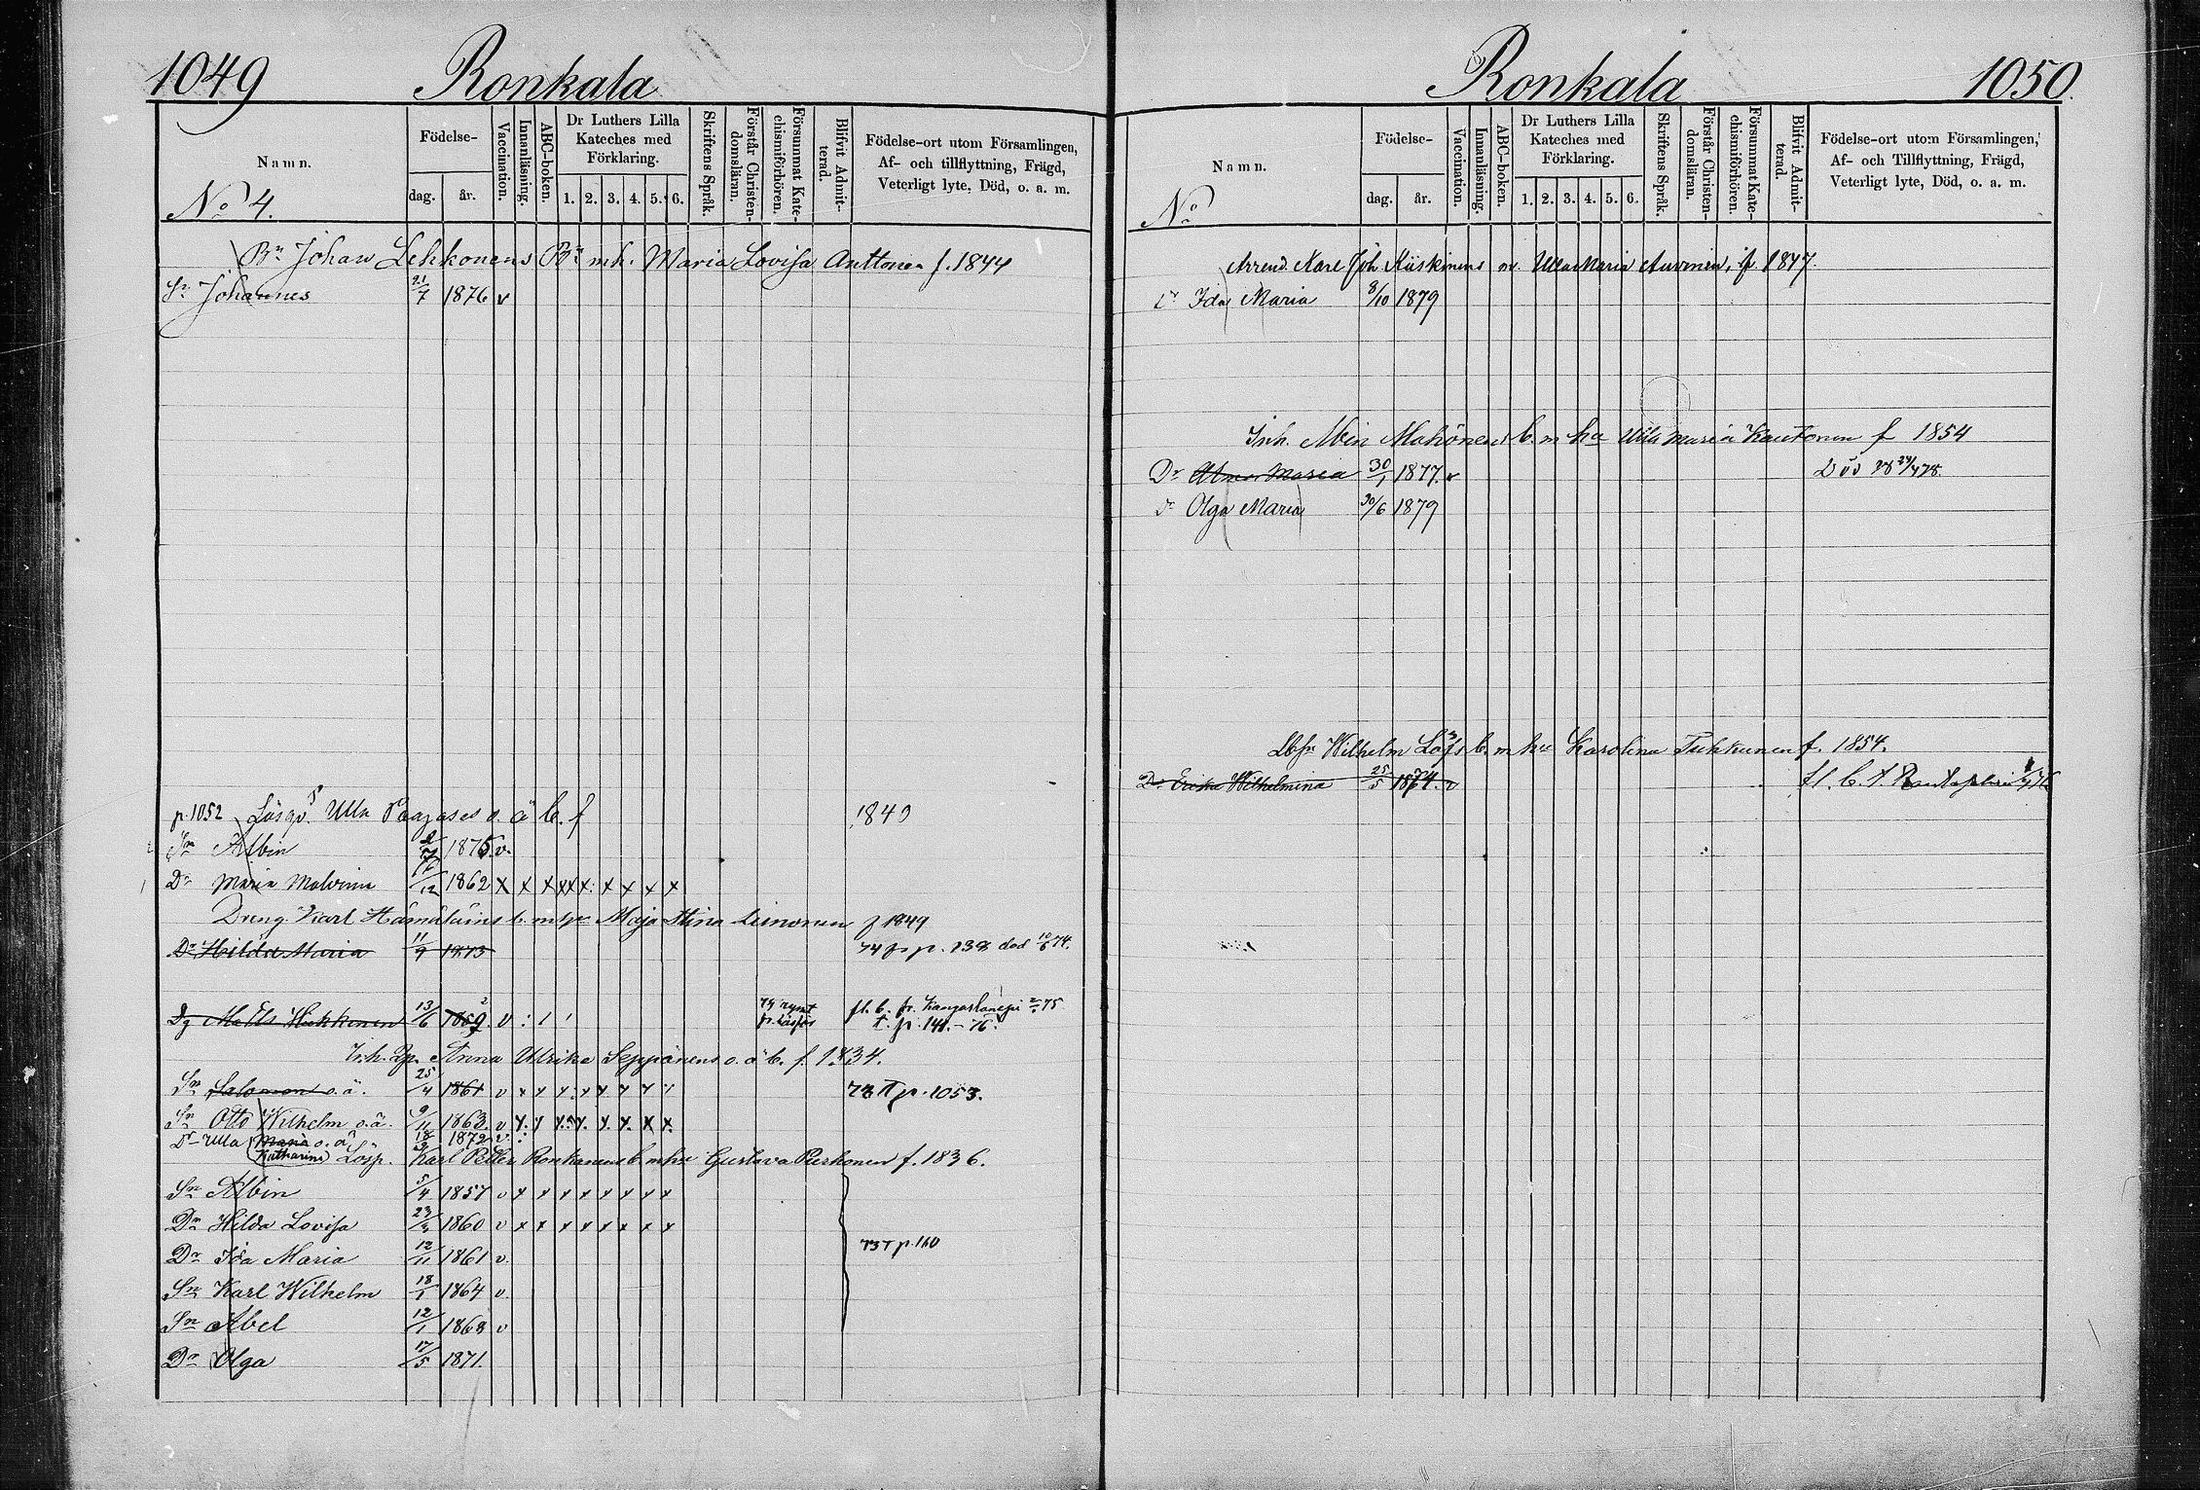 1049 Ronkala
Namn.
Födelse-
dag. år.
Vaccination.
Innanläsning.
ABC-boken.
Dr Luthers Lilla Kateches med Förklaring.
1. 2. 3. 4. 5. 6.
Skriftens Språk.
Förstår Christen-domsläran.
Försummat Kate-chismiförhören.
Blifvit Admit-terad.
Födelse-ort utom Församlingen,
Af- och tillflyttning, Frägd,
Veterligt lyte, Död, o. a. m.
No 4.
Bn Johan Lehkonens Bn m h. Maria Lovisa Anttonen f. 1844
Sn Johannes 21/7 1876 v
p. 1052 Ulla Paajases o. ä b. f 1840
Sn Albin 1875 v.
Dr Maria Malvina /12 1862 x x x xx x x x x x
Dreng Karl Hämäläins b. m hu Maja Stina Leinonen f 1849
Dr Hilda Maria 11/9 1873 74 fr p. 138 död 10/6 74.
Dg Matts Hukkonen 13/6 1859 v fl. b. fr. Kangaslampi 75
t. p. 141. - 76.
Inh. Anna Ulrika Seppänens o. ä b. f. 1834.
Sn Salomon o. ä. 25/4 1861 v x x x x x x x x 78 T p. 1053.
Sn Otto Wilhelm o. ä. 9/11 1863 v
Dr Ulla Maria o. ä 18 1872 v
Katharina Losp. Karl Petter Ronkanens b. m hu Gustava Purhonen f. 1836.
Sn Albin 5/4 1857 v x x x x x x x x
Dr Hilda Lovisa 23/3 1860 v x x x x x x x x
Dr Ida Maria 12/11 1861 v. 73 T p. 160
Sn Karl Wilhelm 18/1 1864 v.
Sn Abel 12/1 1868 v
Dr Olga 17/5 1871.
Ronkala 1050.
Namn.
Födelse-
dag. år.
Vaccination.
Innanläsning.
ABC-boken.
Dr Luthers Lilla Kateches med Förklaring.
1. 2. 3. 4. 5. 6.
Skriftens Språk.
Förstår Christen-domsläran.
Försummat Kate-chismiförhören.
Blifvit Admit-terad.
Födelse-ort utom Församlingen,
Af- och Tillflyttning, Frägd,
Veterligt lyte, Död, o. a. m.
No
Arrend. Karl Joh Kiiskinens m. Ulla Maria Auvinen, f 1847.
Dr Ida Maria 8/10 1879
Inh. Albin Mahönens b. m hu Ulla Maria Kautonen f 1854
Dr Alma Maria 30/1 1877. v Död
Dr Olga Maria 30/6 1879
Wilhelm Löfs b. m hu Karolina Tuhkunen f. 1854.
Dr Erika Wilhelmina 25/5 1874. v fl. b. t. Rantasalmi